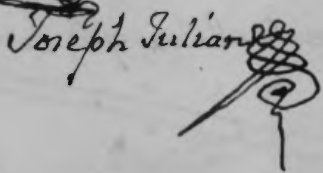 Joseph Julian